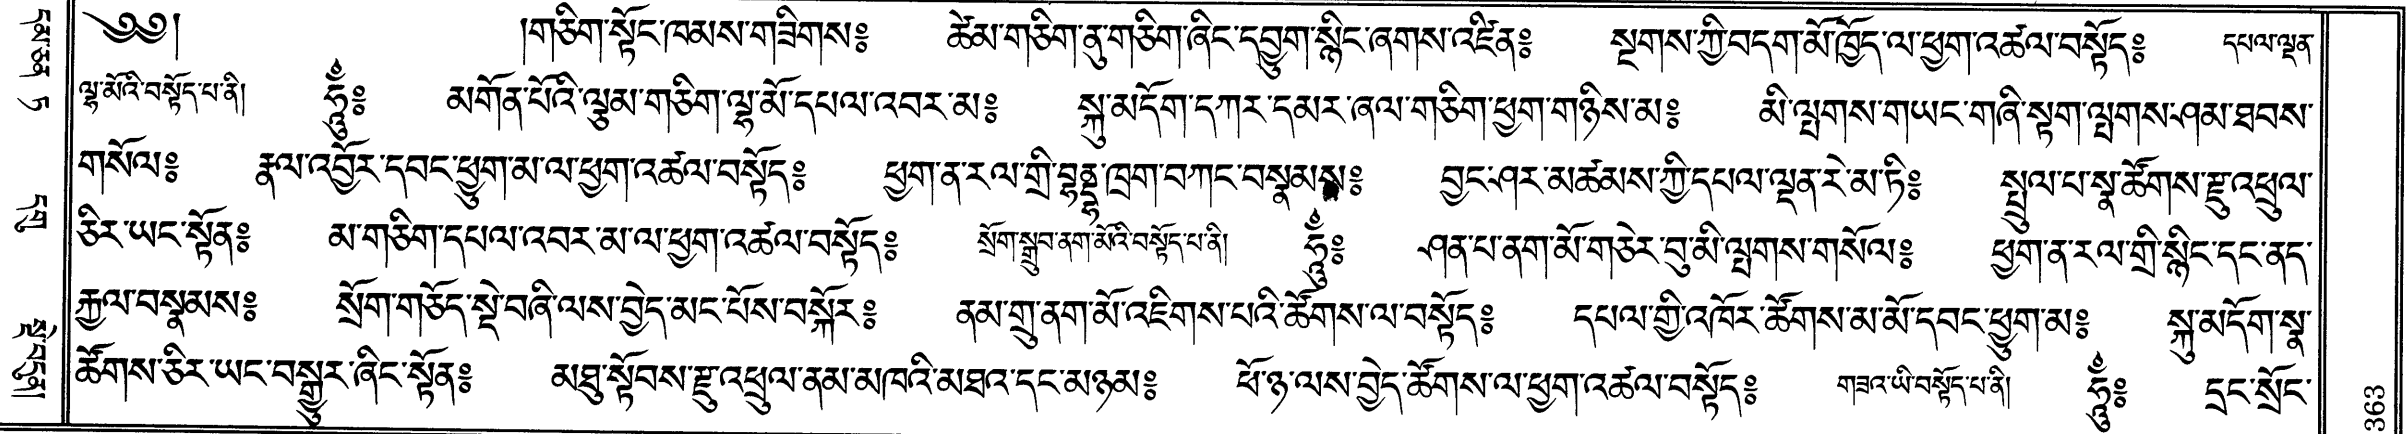 ༄༅། །གཅིག་སྟོང་ཁམས་གཟིགས༔ ཚེམ་གཅིག་ནུ་གཅིག་ཞིང་དབྱུག་སྙིང་ཞགས་འཛིན༔ སྔགས་ཀྱི་བདག་མོ་ཁྱོད་ལ་ཕྱག་འཚལ་བསྟོད༔ དཔལ་ལྡན་
ལྷ་མོའི་བསྟོད་པ་ནི། ཧཱུྃ༔ མགོན་པོའི་ལྕམ་གཅིག་ལྷ་མོ་དཔལ་འབར་མ༔ སྐུ་མདོག་དཀར་དམར་ཞལ་གཅིག་ཕྱག་གཉིས་མ༔ མི་ལྤགས་གཡང་གཞི་སྟག་ལྤགས་ཤམ་ཐབས་
གསོལ༔ རྣལ་འབྱོར་དབང་ཕྱུག་མ་ལ་ཕྱག་འཚལ་བསྟོད༔ ཕྱག་ན་རལ་གྲི་བྷནྡྷ་ཁྲག་བཀང་བསྣམས༔ བྱང་ཤར་མཚམས་ཀྱི་དཔལ་ལྡན་རེ་མ་ཏི༔ སྤྲུལ་པ་སྣ་ཚོགས་རྫུ་འཕྲུལ་
ཅིར་ཡང་སྟོན༔ མ་གཅིག་དཔལ་འབར་མ་ལ་ཕྱག་འཚལ་བསྟོད༔ སྲོག་སྒྲུབ་ནག་མོའི་བསྟོད་པ་ནི། ཧཱུྃ༔ ཤན་པ་ནག་མོ་གཅེར་བུ་མི་ལྤགས་གསོལ༔ ཕྱག་ན་རལ་གྲི་སྙིང་དང་ནད་
རྐྱལ་བསྣམས༔ སྲོག་གཅོད་སྡེ་བཞི་ལས་བྱེད་མང་པོས་བསྐོར༔ ནམ་གྲུ་ནག་མོ་འཇིགས་པའི་ཚོགས་ལ་བསྟོད༔ དཔལ་གྱི་འཁོར་ཚོགས་མ་མོ་དབང་ཕྱུག་མ༔ སྐུ་མདོག་སྣ་
ཚོགས་ཅིར་ཡང་བསྒྱུར་ཞིང་སྟོན༔ མཐུ་སྟོབས་རྫུ་འཕྲུལ་ནམ་མཁའི་མཐའ་དང་མཉམ༔ ཕོ་ཉ་ལས་བྱེད་ཚོགས་ལ་ཕྱག་འཚལ་བསྟོད༔ གཟའ་ཡི་བསྟོད་པ་ནི། ཧཱུྃ༔ དྲང་སྲོང་
363